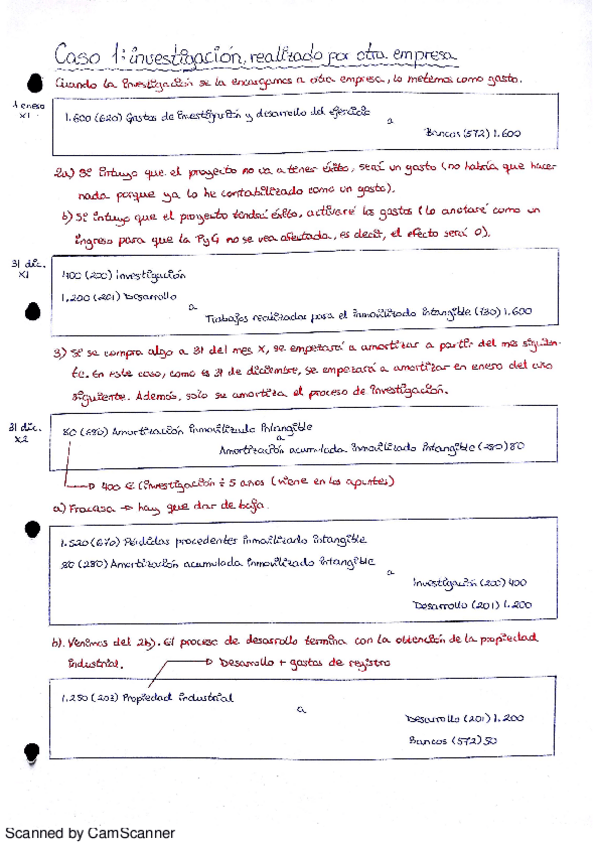 Caso 1: investigación, realizado por otra empresa
Cuando la investigación se la encargamos a otra empresa, lo metemos como gasto.
1 enero
X1
1.600 (620) Gastos de investigación y desarrollo del ejercicio
a
Bancos (572) 1.600
2a) Si intuyo que el proyecto no va a tener éxito, será un gasto (no habría que hacer
nada porque ya lo he contabilizado como un gasto).
b) Si intuyo que el proyecto tendrá éxito, activaré los gastos (lo anotaré como un
ingreso para que la PyG no se vea afectada, es decir, el efecto será 0).
31 dic.
X1
400 (200) investigación
1.200 (201) Desarrollo
a
Trabajos realizados para el inmovilizado intangible (730) 1.600
3) Si se compra algo a 31 del mes X, se empezará a amortizar a partir del mes siguien-
te. En este caso, como es 31 de diciembre, se empezará a amortizar en enero del año
siguiente. Además, solo se amortiza el proceso de investigación.
31 dic.
X2
80 (680) Amortización inmovilizado intangible
a
Amortización acumulada inmovilizado intangible (280) 80
400 € (investigación ÷ 5 años (viene en los apuntes)
a) Fracasa → hay que dar de baja.
1.520 (670) Pérdidas procedentes inmovilizado intangible
80 (280) Amortización acumulada inmovilizado intangible
a
investigación (200) 400
Desarrollo (201) 1.200
b). Venimos del 2b). El proceso de desarrollo termina con la obtención de la propiedad
industrial.
Desarrollo + gastos de registro
1.250 (203) Propiedad industrial
a
Desarrollo (201) 1.200
Bancos (572) 50
Scanned by CamScanner